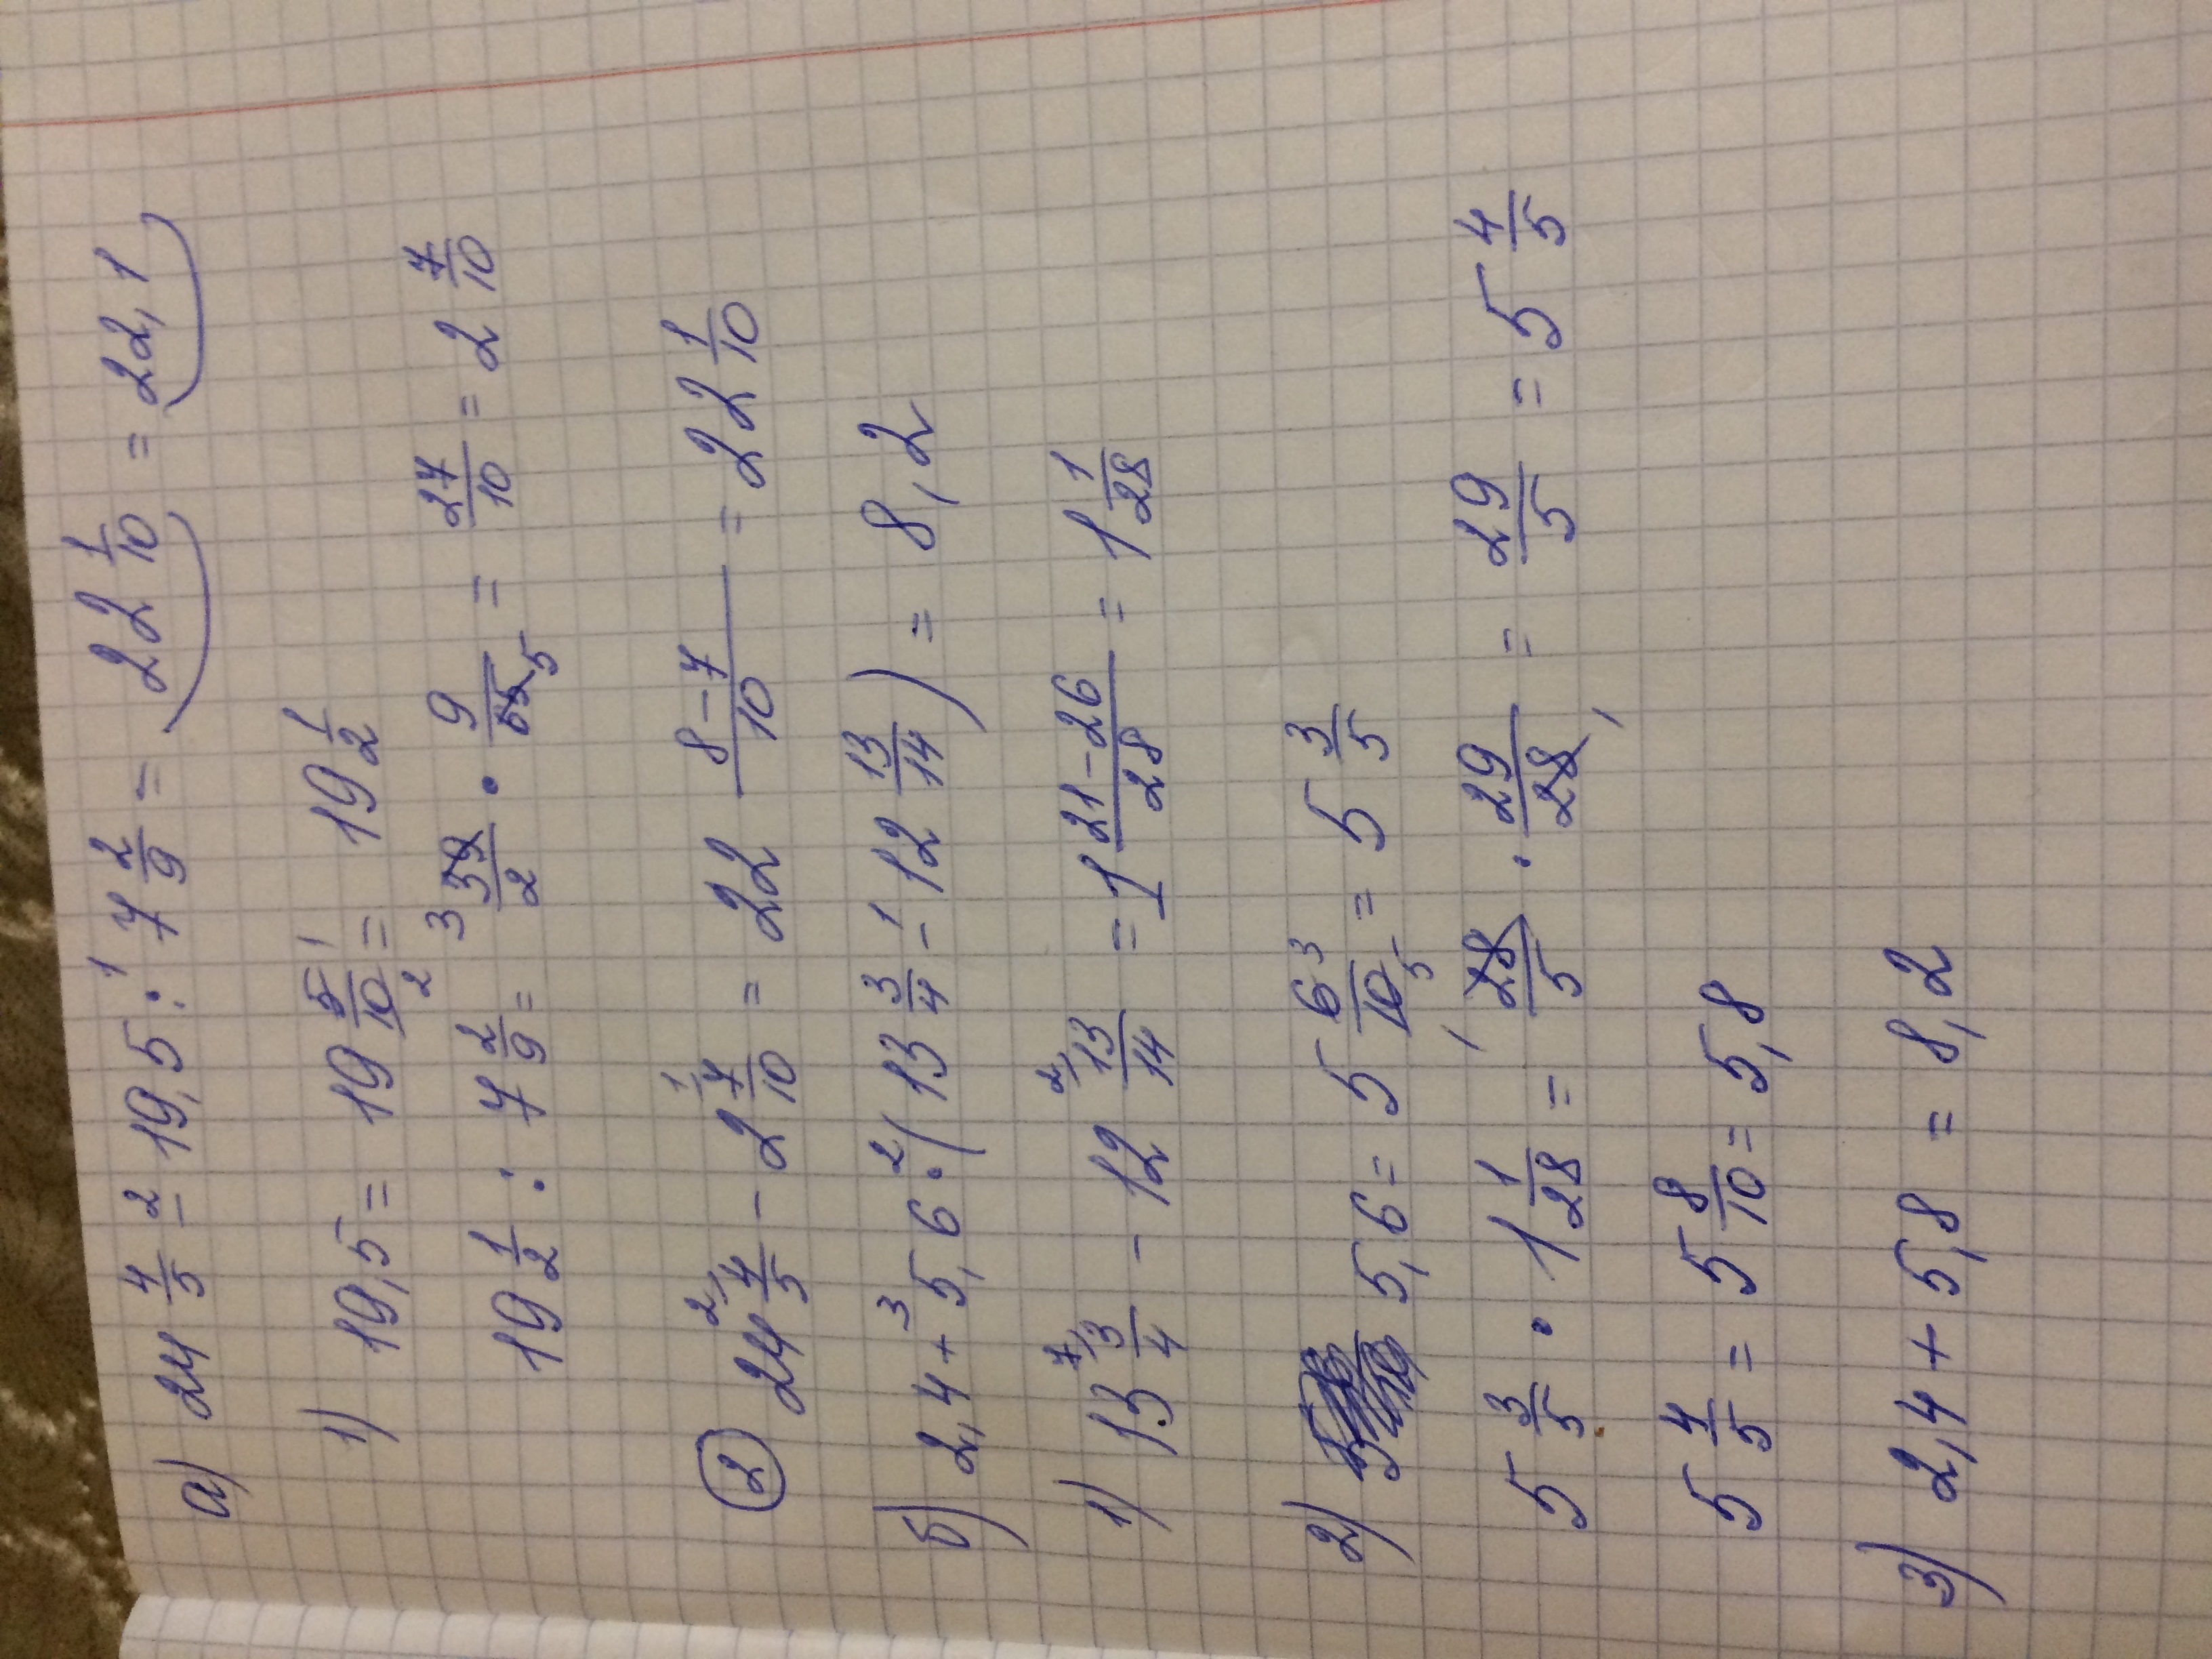 а) 24 4/5 -² 19,5 :¹ 7 2/9 = 22 1/10 = 22,1
1) 19,5 = 19 5¹/10₂ = 19 1/2
19 1/2 : 7 2/9 = ³39/2 · 9/65₅ = 27/10 = 2 7/10
② 24 ²⁾4/5 - 2 ¹⁾7/10 = 22 8-7/10 = 22 1/10
б) 2,4 +³ 5,6 ·² (13 3/4 -¹ 12 13/14) = 8,2
1) 13 ⁷⁾3/4 - 12 ²⁾13/14 = 1 21-26/28 = 1 1/28
2) 5,6 = 5 6³/10₅ = 5 3/5
5 3/5 · 1 1/28 = ¹28/5 · 29/28₁ = 29/5 = 5 4/5
5 4/5 = 5 8/10 = 5,8
3) 2,4 + 5,8 = 8,2